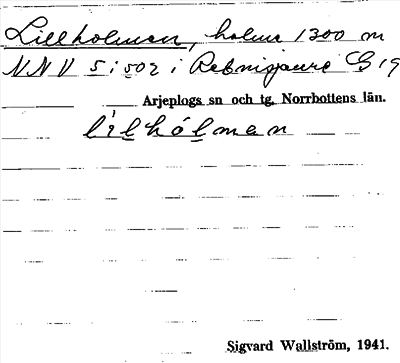 Lillholmen, holme 1300 m
NNV 5:502 i Rebnisjaure G 19
Arjeplogs sn och tg. Norrbottens län.
li̱lhóḻman
Sigvard Wallström, 1941.